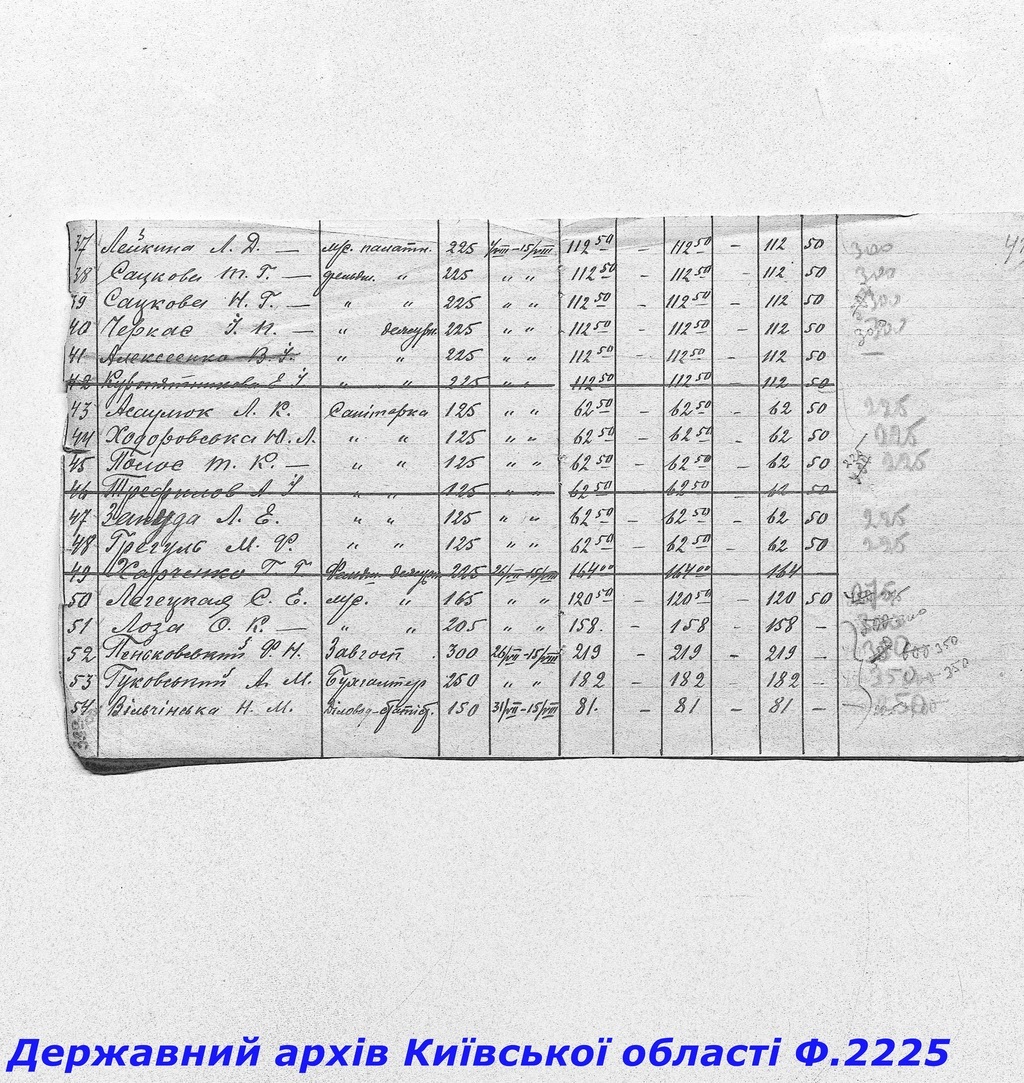 37 Лейкина Л. Д. — мл. палатн. 225 1/VIII-15/VIII 112 50 - 112 50 - 112 50 300
38 Сацкова Т. Г. — фельдш. " 225 " " 112 50 - 112 50 - 112 50 300
39 Сацкова Н. Г. — " " 225 " " 112 50 - 112 50 - 112 50 300
40 Черкас І. П. — " дежурн. 225 " " 112 50 - 112 50 - 112 50 300
41 Алексеенко В. І. " " 225 " " 112 50 - 112 50 - 112 50 —
42 Е І " " 225 " " 112 50 112 50 - 112 50
43 Асаулюк Л. К. Санітарка 125 " " 62 50 - 62 50 - 62 50 225
44 Ходоровська Ю. Л. " " 125 " " 62 50 - 62 50 - 62 50 225
45 Полос Т. К. — " " 125 " " 62 50 - 62 50 - 62 50 225
46 Трефилов А І " " 125 62 50 62 50 - 62 50
47 Л. Е. " " 125 " " 62 50 - 62 50 - 62 50 225
48 Грегуль М. Ф. " " 125 " " 62 50 - 62 50 - 62 50 225
49 Харченко Г Г Фельдш. дежурн. 225 26/VII-15/VIII 164 00 164 00 164
50 Легецкая С. Е. мл. " 165 " " 120 50 - 120 50 - 120 50 275
51 Лоза О. К. — " " 205 " " 158 - 158 - 158 -
52 Пеньковський Ф. Н. Завгосп. 300 26/VII-15/VIII 219 - 219 - 219 - 350
53 Гуковський А. М. Бухгалтер 250 " " 182 - 182 - 182 - 350
54 Вільчінська Н. М. 150 31/VII-15/VIII 81 - 81 - 81 - 250
Державний архів Київської області Ф.2225